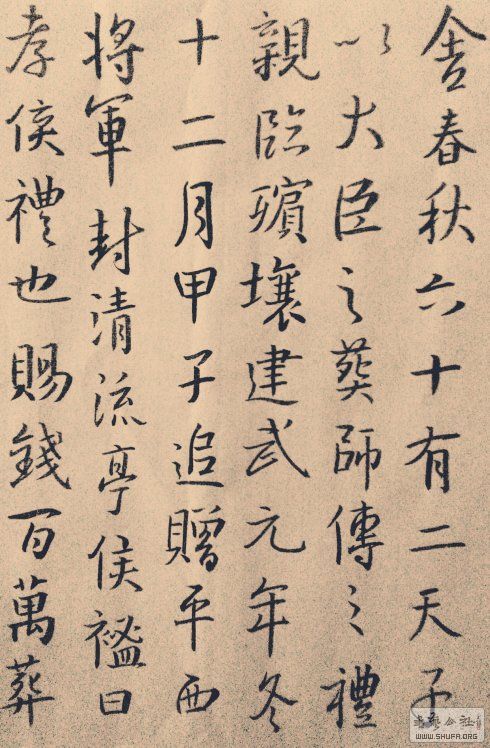 舍春秋六十有二天子
以大臣之葬師傅之禮
親臨殯壤建武元年冬
十二月甲子追贈平西
將軍封清流亭侯謚曰
孝侯禮也賜錢百萬葬
WWW.SHUFA.ORG